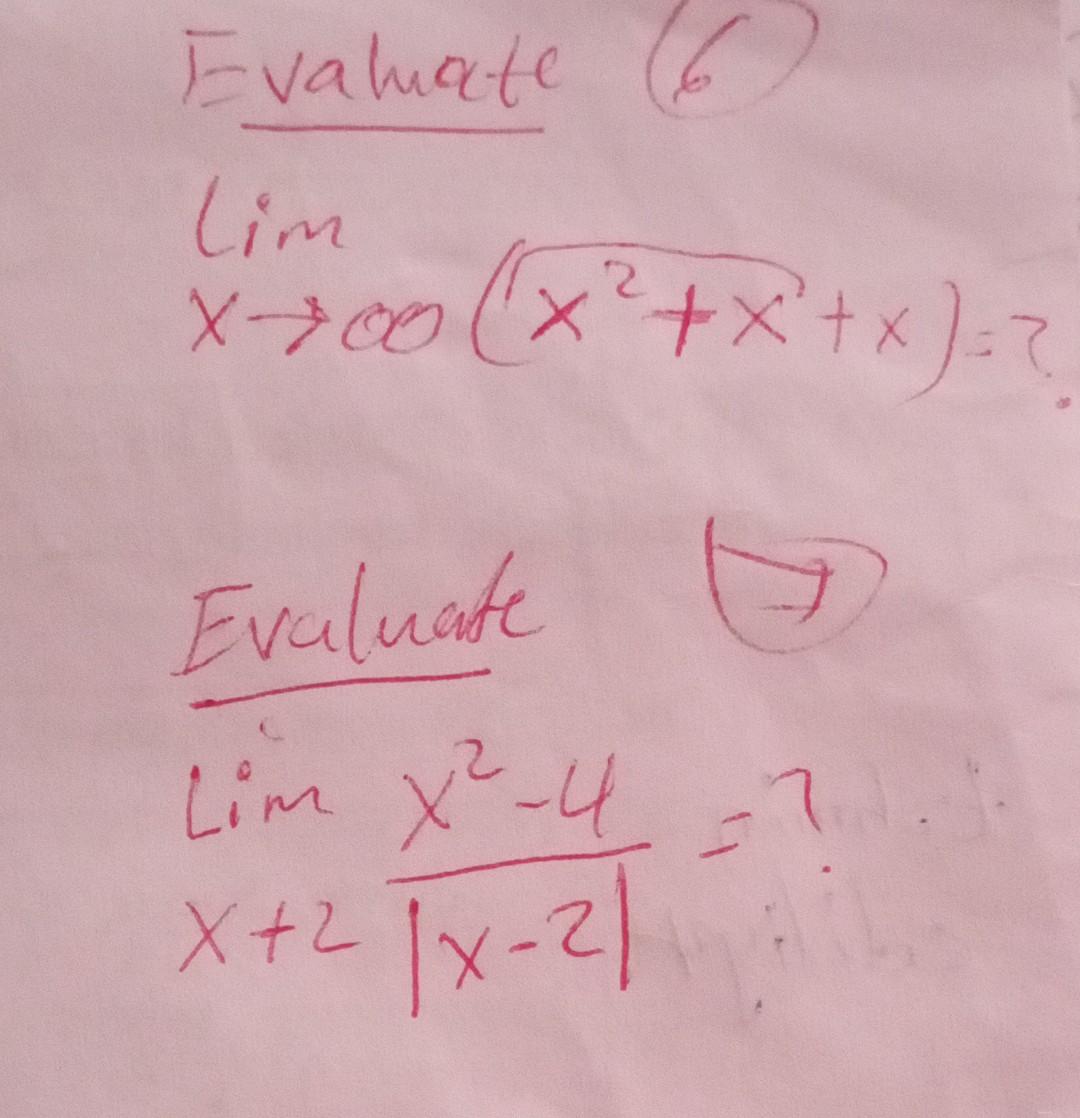 Evaluate (6)
Lim
x→∞ (√(x²+x) + x) = ?
Evaluate 7
Lim x²-4 = ?
x+2 |x-2|